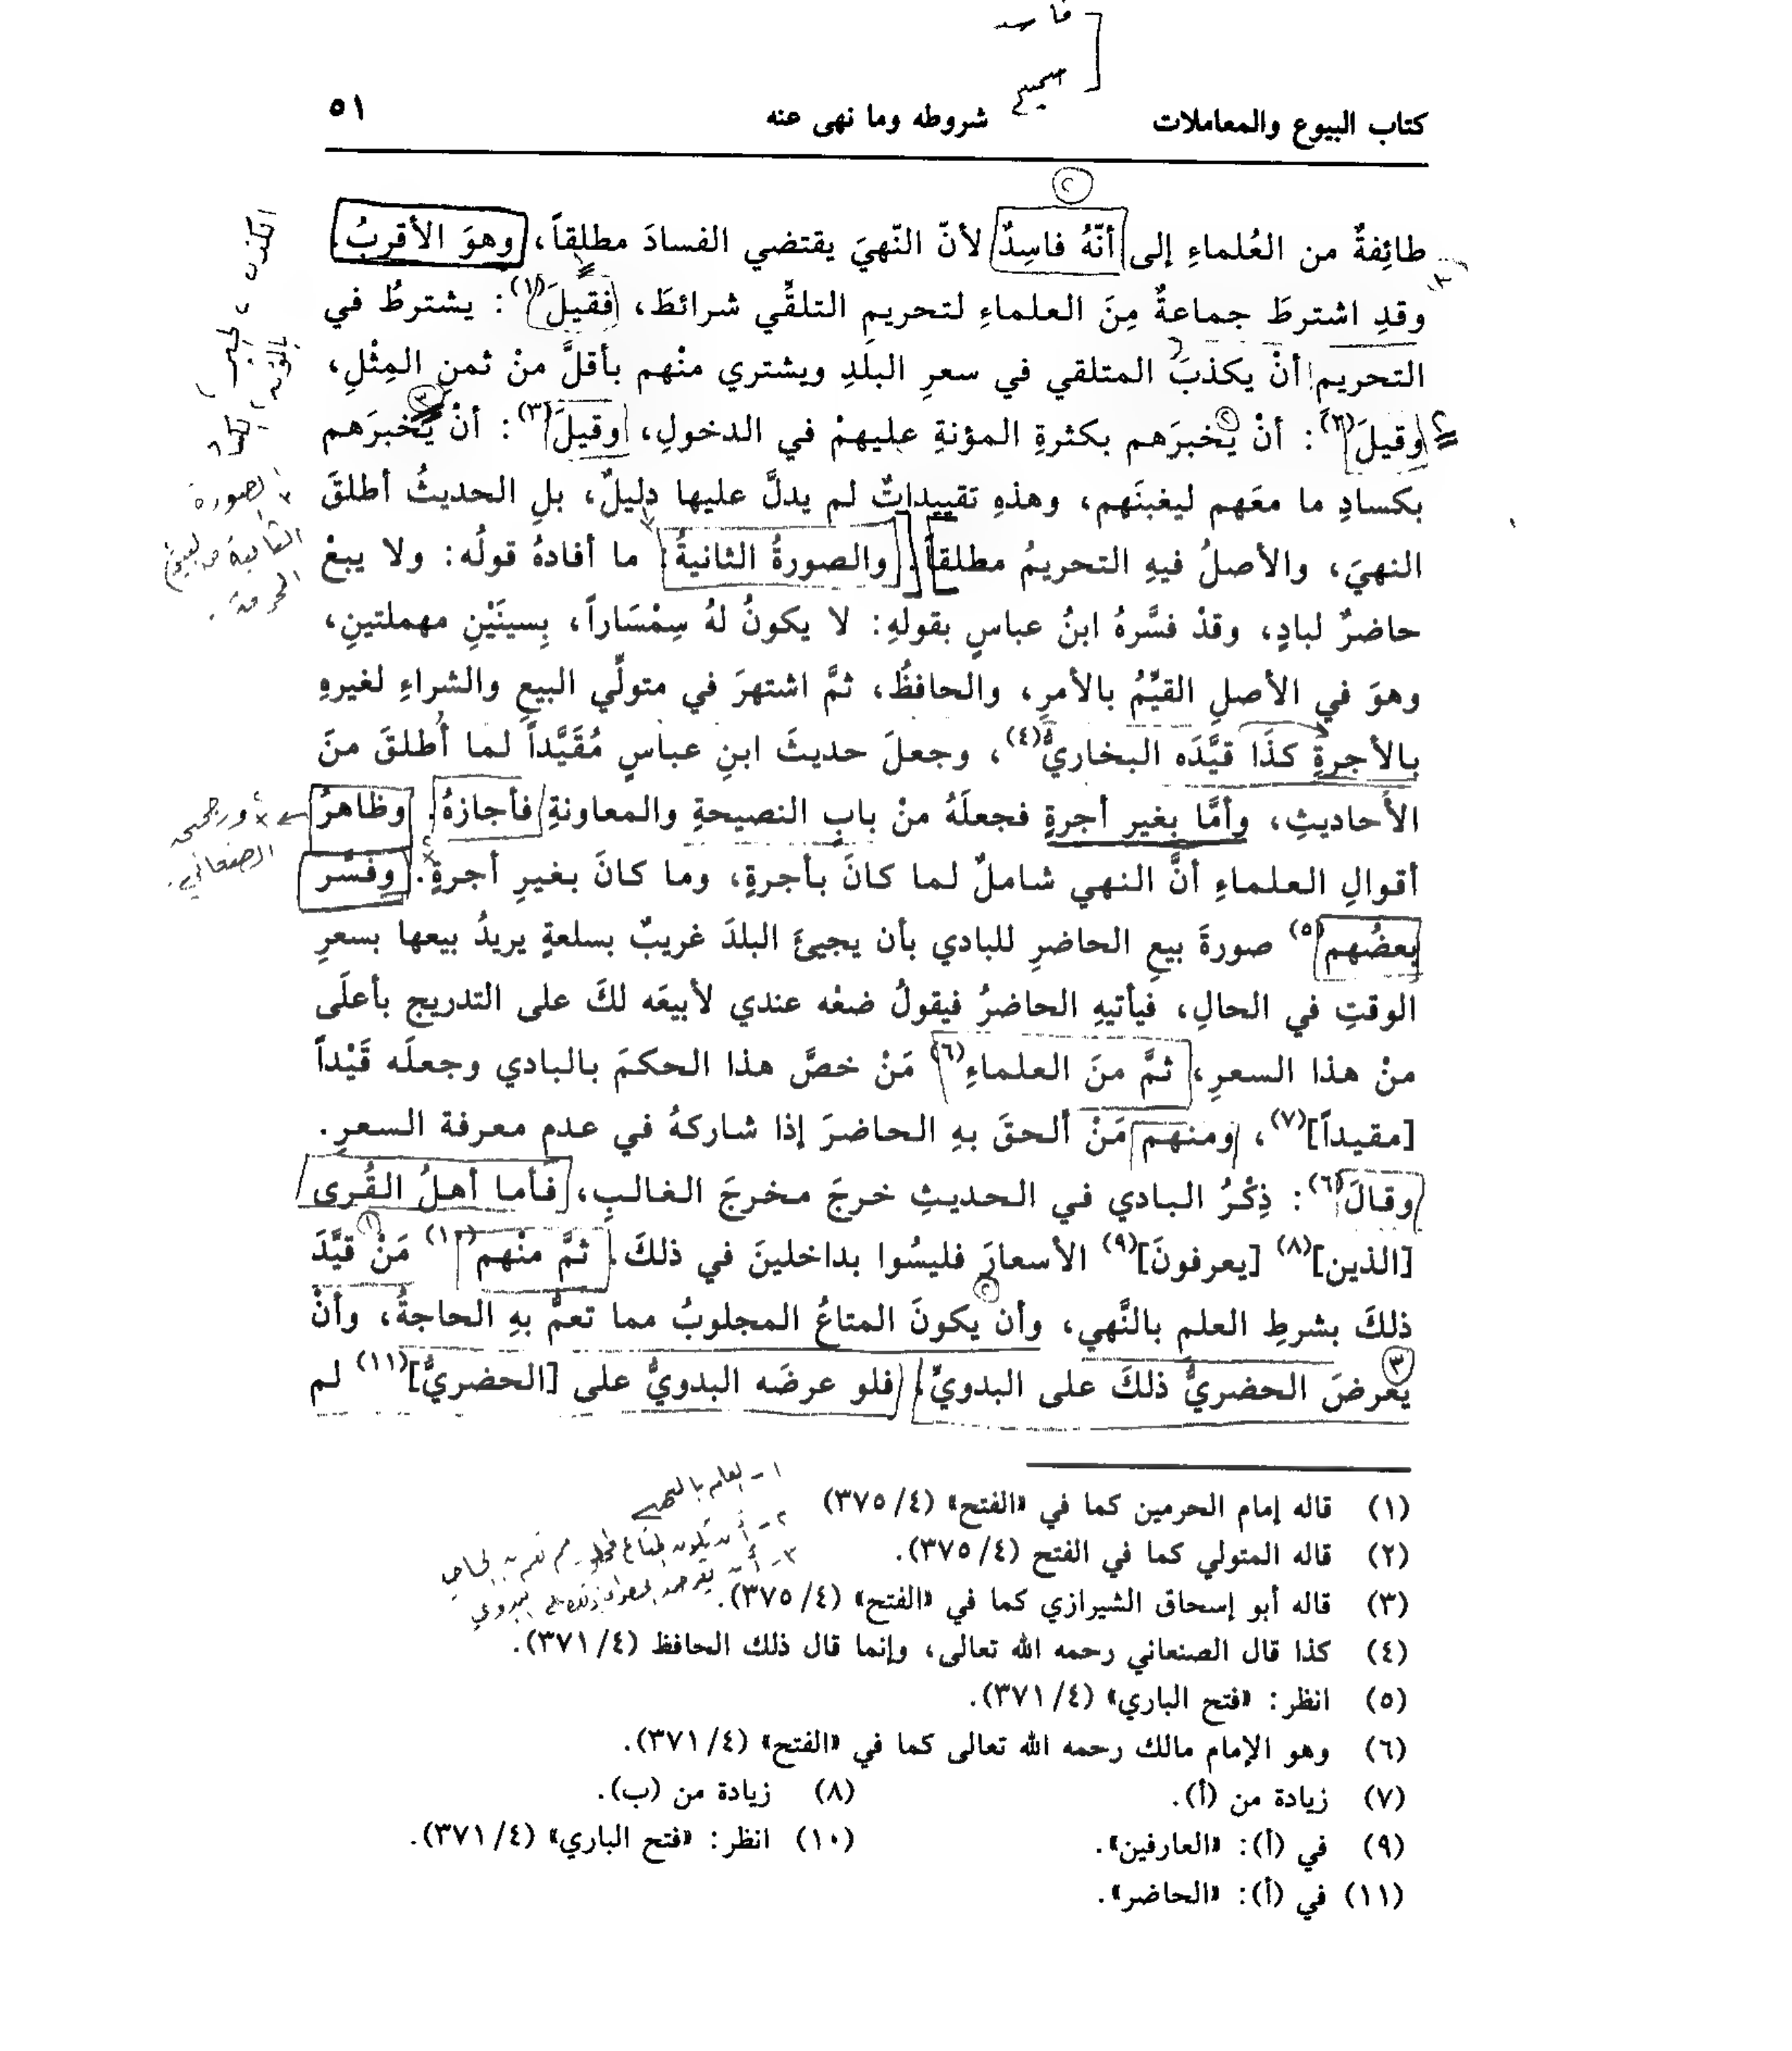 فاسد
صحيح
كتاب البيوع والمعاملات شروطه وما نهى عنه ٥١
طائِفةٌ من العُلماءِ إلى أنّهُ فاسِدٌ لأنّ النّهيَ يقتضي الفسادَ مطلقاً، وهوَ الأقربُ.
وقدِ اشترطَ جماعةٌ مِنَ العلماءِ لتحريمِ التلقِّي شرائطَ، فقيلَ(١): يشترطُ في
التحريمِ أنْ يكذبَ المتلقي في سعرِ البلَدِ ويشتري منْهم بأقلَّ منْ ثمنِ المِثْلِ،
وقيلَ(٢): أنْ يُخبرَهم بكثرةِ المؤنةِ عليهمْ في الدخولِ، وقيلَ(٣): أنْ يُخبرَهم
بكسادِ ما معَهم ليغبنَهم، وهذهِ تقييداتٌ لم يدلَّ عليها دليلٌ، بلِ الحديثُ أطلقَ
النهيَ، والأصلُ فيهِ التحريمُ مطلقاً. والصورةُ الثانيةُ: ما أفادهُ قولُه: ولا يبعْ
حاضرٌ لبادٍ، وقدْ فسَّرهُ ابنُ عباسٍ بقولهِ: لا يكونُ لهُ سِمْسَاراً، بِسينَيْنِ مهملتينِ،
وهوَ في الأصلِ القيِّمُ بالأمرِ، والحافظُ، ثمَّ اشتهرَ في متولِّي البيعِ والشراءِ لغيرهِ
بالأجرةِ كذَا قيَّدَه البخاريُّ(٤)، وجعلَ حديثَ ابنِ عباسٍ مُقَيَّداً لما أُطلقَ منَ
الأحاديثِ، وأمَّا بغيرِ أجرةٍ فجعلَهُ منْ بابِ النصيحةِ والمعاونةِ فأجازهُ. وظاهرُ
أقوالِ العلماءِ أنَّ النهي شاملٌ لما كانَ بأجرةٍ، وما كانَ بغيرِ أجرةٍ. وفسَّر
بعضُهم(٥) صورةَ بيعِ الحاضرِ للبادي بأن يجيئَ البلدَ غريبٌ بسلعةٍ يريدُ بيعها بسعرِ
الوقتِ في الحالِ، فيأتيهِ الحاضرُ فيقولُ ضعْه عندي لأبيعَه لكَ على التدريج بأعلَى
منْ هذا السعرِ، ثمَّ منَ العلماءِ(٦) مَنْ خصَّ هذا الحكمَ بالبادي وجعلَه قَيْداً
[مقيداً](٧)، ومنهم مَنْ ألحقَ بهِ الحاضرَ إذا شاركهُ في عدمِ معرفة السعرِ.
وقالَ(٦): ذِكْرُ البادي في الحديثِ خرجَ مخرجَ الغالبِ، فأما أهلُ القُرى
[الذين](٨) [يعرفونَ](٩) الأسعارَ فليسُوا بداخلينَ في ذلكَ. ثمَّ منْهم(١٠) مَنْ قيَّدَ
ذلكَ بشرطِ العلمِ بالنَّهي، وأن يكونَ المتاعُ المجلوبُ مما تعمُّ بهِ الحاجةُ، وأنْ
يعرضَ الحضريُّ ذلكَ على البدويِّ، فلو عرضَه البدويُّ على [الحضريِّ](١١) لم
(١) قاله إمام الحرمين كما في «الفتح» (٤/ ٣٧٥)
(٢) قاله المتولي كما في الفتح (٤/ ٣٧٥).
(٣) قاله أبو إسحاق الشيرازي كما في «الفتح» (٤/ ٣٧٥).
(٤) كذا قال الصنعاني رحمه الله تعالى، وإنما قال ذلك الحافظ (٤/ ٣٧١).
(٥) انظر: «فتح الباري» (٤/ ٣٧١).
(٦) وهو الإمام مالك رحمه الله تعالى كما في «الفتح» (٤/ ٣٧١).
(٧) زيادة من (أ). (٨) زيادة من (ب).
(٩) في (أ): «العارفين». (١٠) انظر: «فتح الباري» (٤/ ٣٧١).
(١١) في (أ): «الحاضر».
الصورة
الثانية من
ورجحه
الصنعاني.
١- العلم بالنهي
٢- أن يكون المتاع مما تعم به الحاجة
٣- أن يعرض الحضري ذلك على البدوي